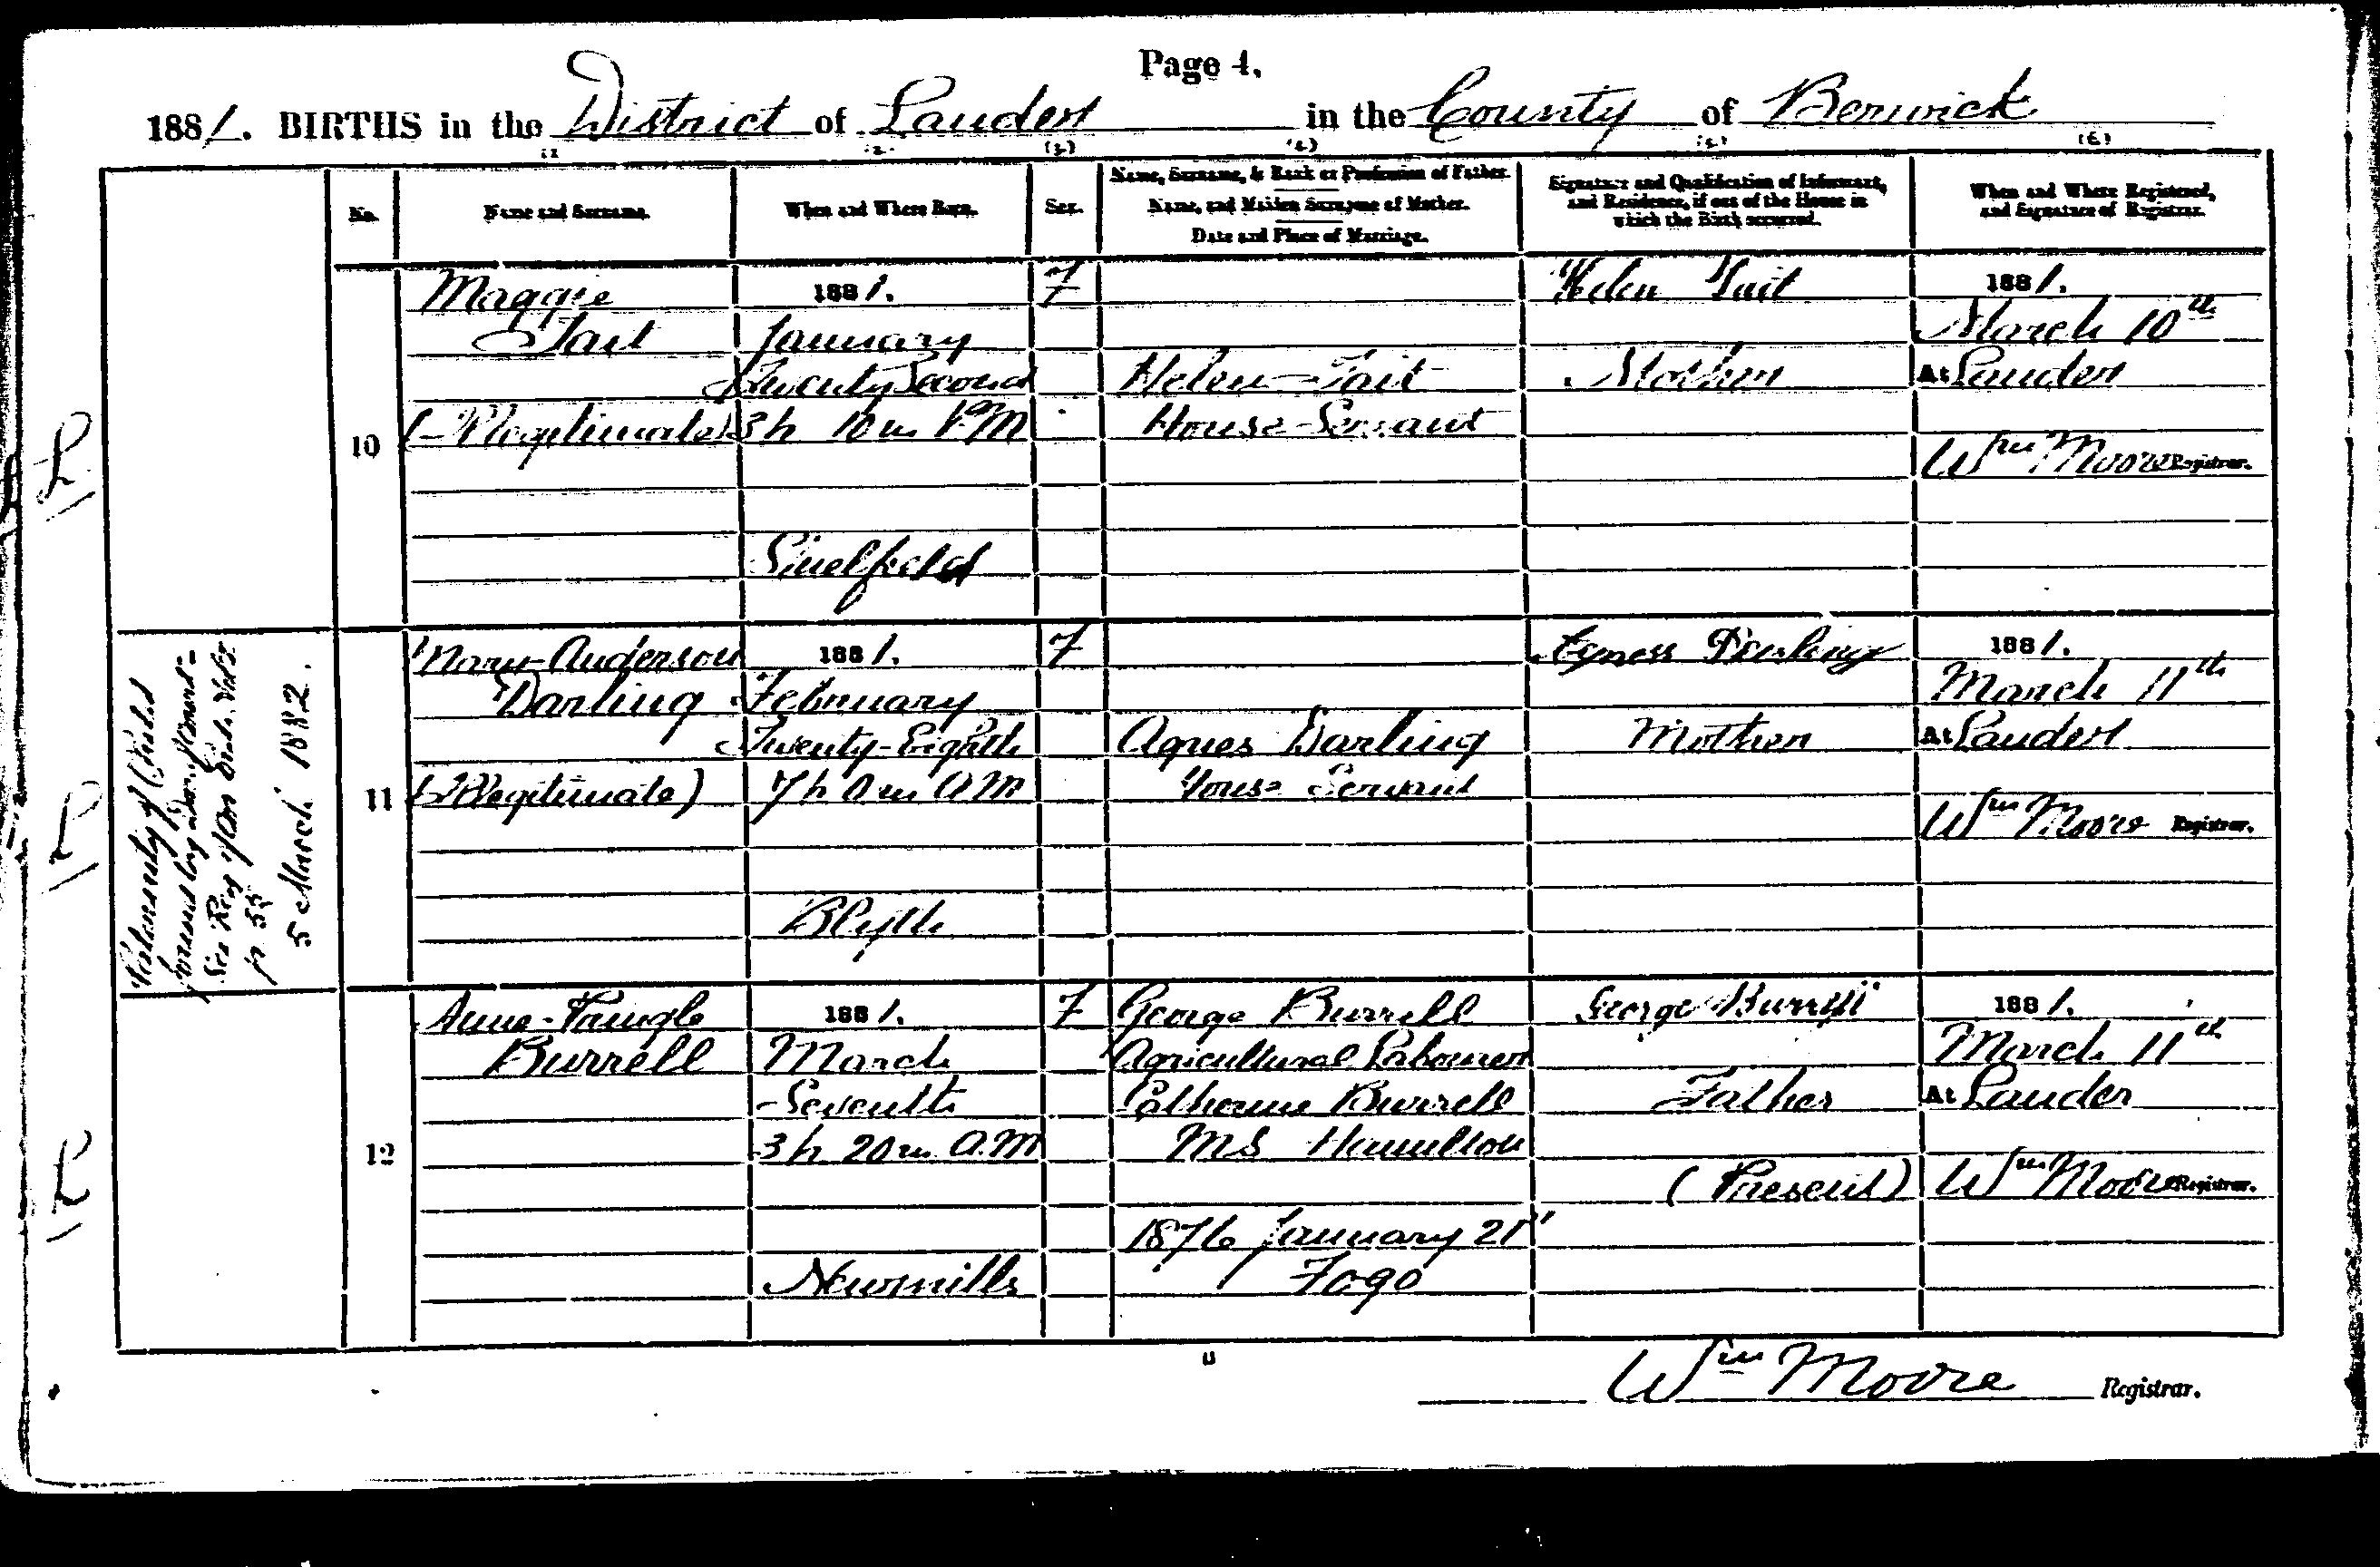 Page 4.
1881. BIRTHS in the District of Lauder in the County of Berwick
No.
Name and Surname.
When and Where Born.
Sex.
Name, Surname, & Rank or Profession of Father.
Name, and Maiden Surname of Mother.
Date and Place of Marriage.
Signature and Qualification of Informant,
and Residence, if out of the House in
which the Birth occurred.
When and Where Registered,
and Signature of Registrar.
10
Maggie
Tait
(Illegitimate)
1881.
January
Twenty Second
3h 10m P.M
F
Helen Tait
House-Servant
Helen Tait
Mother
1881.
March 10th
At Lauder
Wm Moore Registrar.
of Child
See Reg of Cor
p 55
5 March 1882.
11
Mary-Anderson
Darling
(Illegitimate)
1881.
February
Twenty-Eighth
7h 0m A.M
Blyth
F
Agnes Darling
House Servant
Agness Darling
Mother
1881.
March 11th
At Lauder
Wm Moore Registrar.
12
Anne-Pringle
Burrell
1881.
March
Seventh
3h 20m A.M
Newmills
F
George Burrell
Agricultural Labourer
Catherine Burrell
MS Hamilton
1876 January 21st
Fogo
George Burrell
Father
(Present)
1881.
March 11th
At Lauder
Wm Moore Registrar.
Wm Moore Registrar.